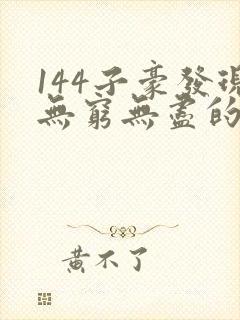 144子豪發現
無窮無盡的
黃不了